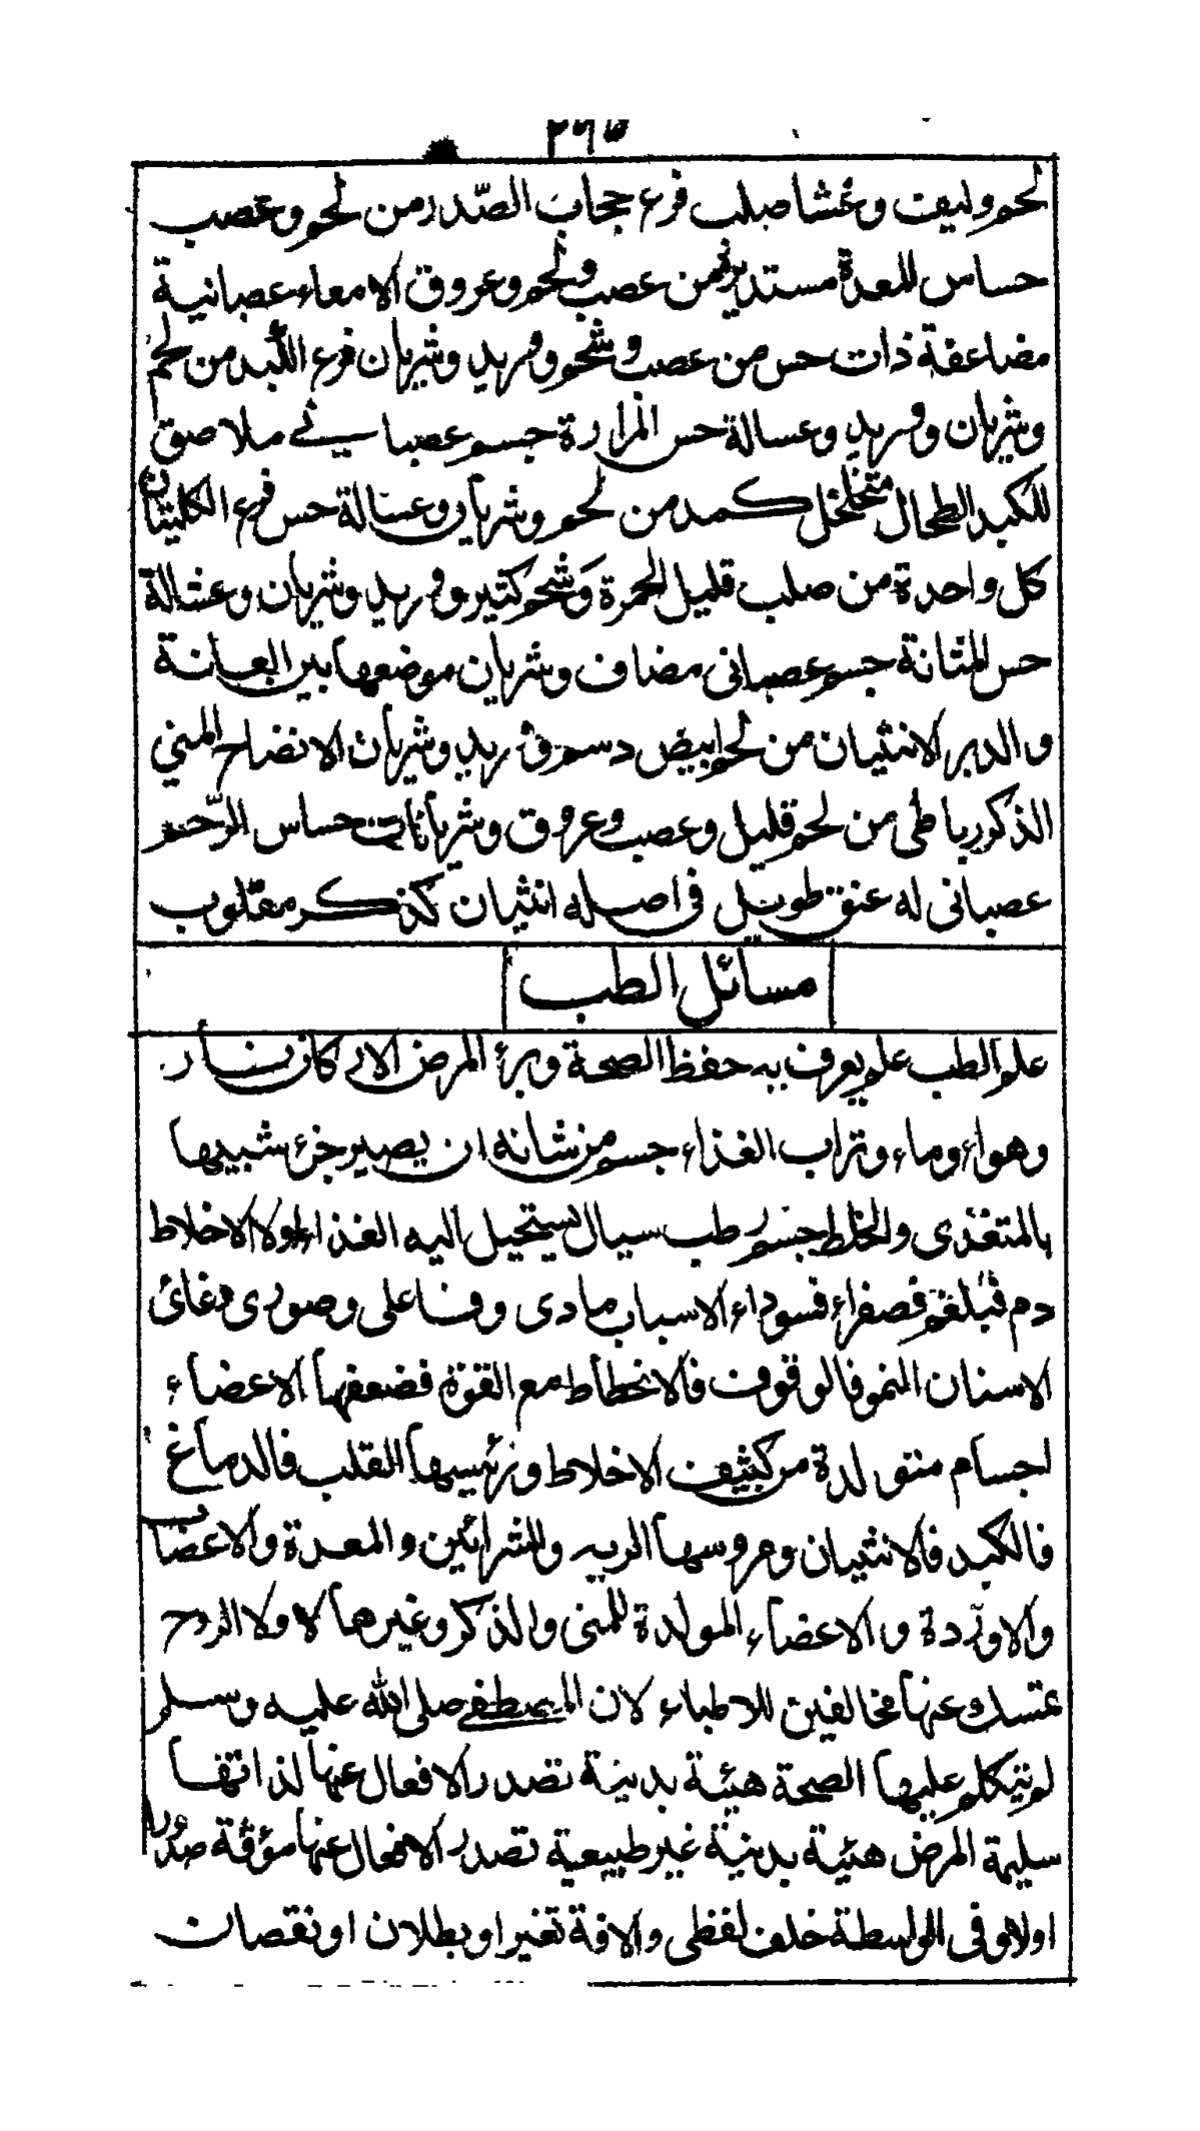 ٢٦٥
لحم وليف وغشا صلب فرع حجاب الصّدر من لحم وعصب
حساس للمعدة مستديرة من عصب ولحم وعروق الامعاء عصبانية
مضاعفة ذات حس من عصب وشحم ووريد وشريان فرع الكبد من لحم
وشريان ووريد وعسالة حس المرارة جسم عصباني ملاصق
للكبد الطحال متخلخل كمد من لحم وشريان وعسالة حس فرع الكليتان
كل واحدة من صلب قليل الحمرة وَشحم كثير ووريد وشريان وعشالة
حس المثانة جسم عصبانى مضاف وشريان موضعها بين العانة
والدبر الانثيان من لحم ابيض دسم وريد وشريان الانضاح المني
الذكر رباطى من لحم قليل وعصب وعروق وشريانات حساس الرّحم
عصبانى له عنق طويل فى اصله انثيان كذكر مقلوب
مسائل الطب
علم الطب علم يعرف به حفظ الصحة وبرء المرض الاركان نار
وهواء وماء وتراب الغذاء جسم من شانه ان يصير جزء شبيها
بالمتغذى والخلط جسم رطب سيال يستحيل اليه الغذاء اولا الاخلاط
دم فبلغم فصفراء فسوداء الاسباب مادى وفاعلى وصورى وغائ
الاسنان النمو فالوقوف فالانحطاط مع القوة فضعفها الاعضاء
اجسام متولدة من كثيف الاخلاط ورئيسها القلب فالدماغ
فالكبد فالانثيان ومروسها الريه والشرائين والمعدة والاعصاب
والاوردة والاعضاء المولدة للمنى والذكر وغيرها لا ولا الروح
نمسك عنها مخالفين للاطباء لان المصطفى صلى الله عليه وسلم
لم يتكلم عليها الصحة هيئة بدنية تصدر الافعال عنها لذاتها
سليمة المرض هيئة بدنية غير طبيعية تصدر الافعال عنها مؤفة صدورا
اولا وفى الواسطة خلف لفظى والافة تغير او بطلان او نقصان